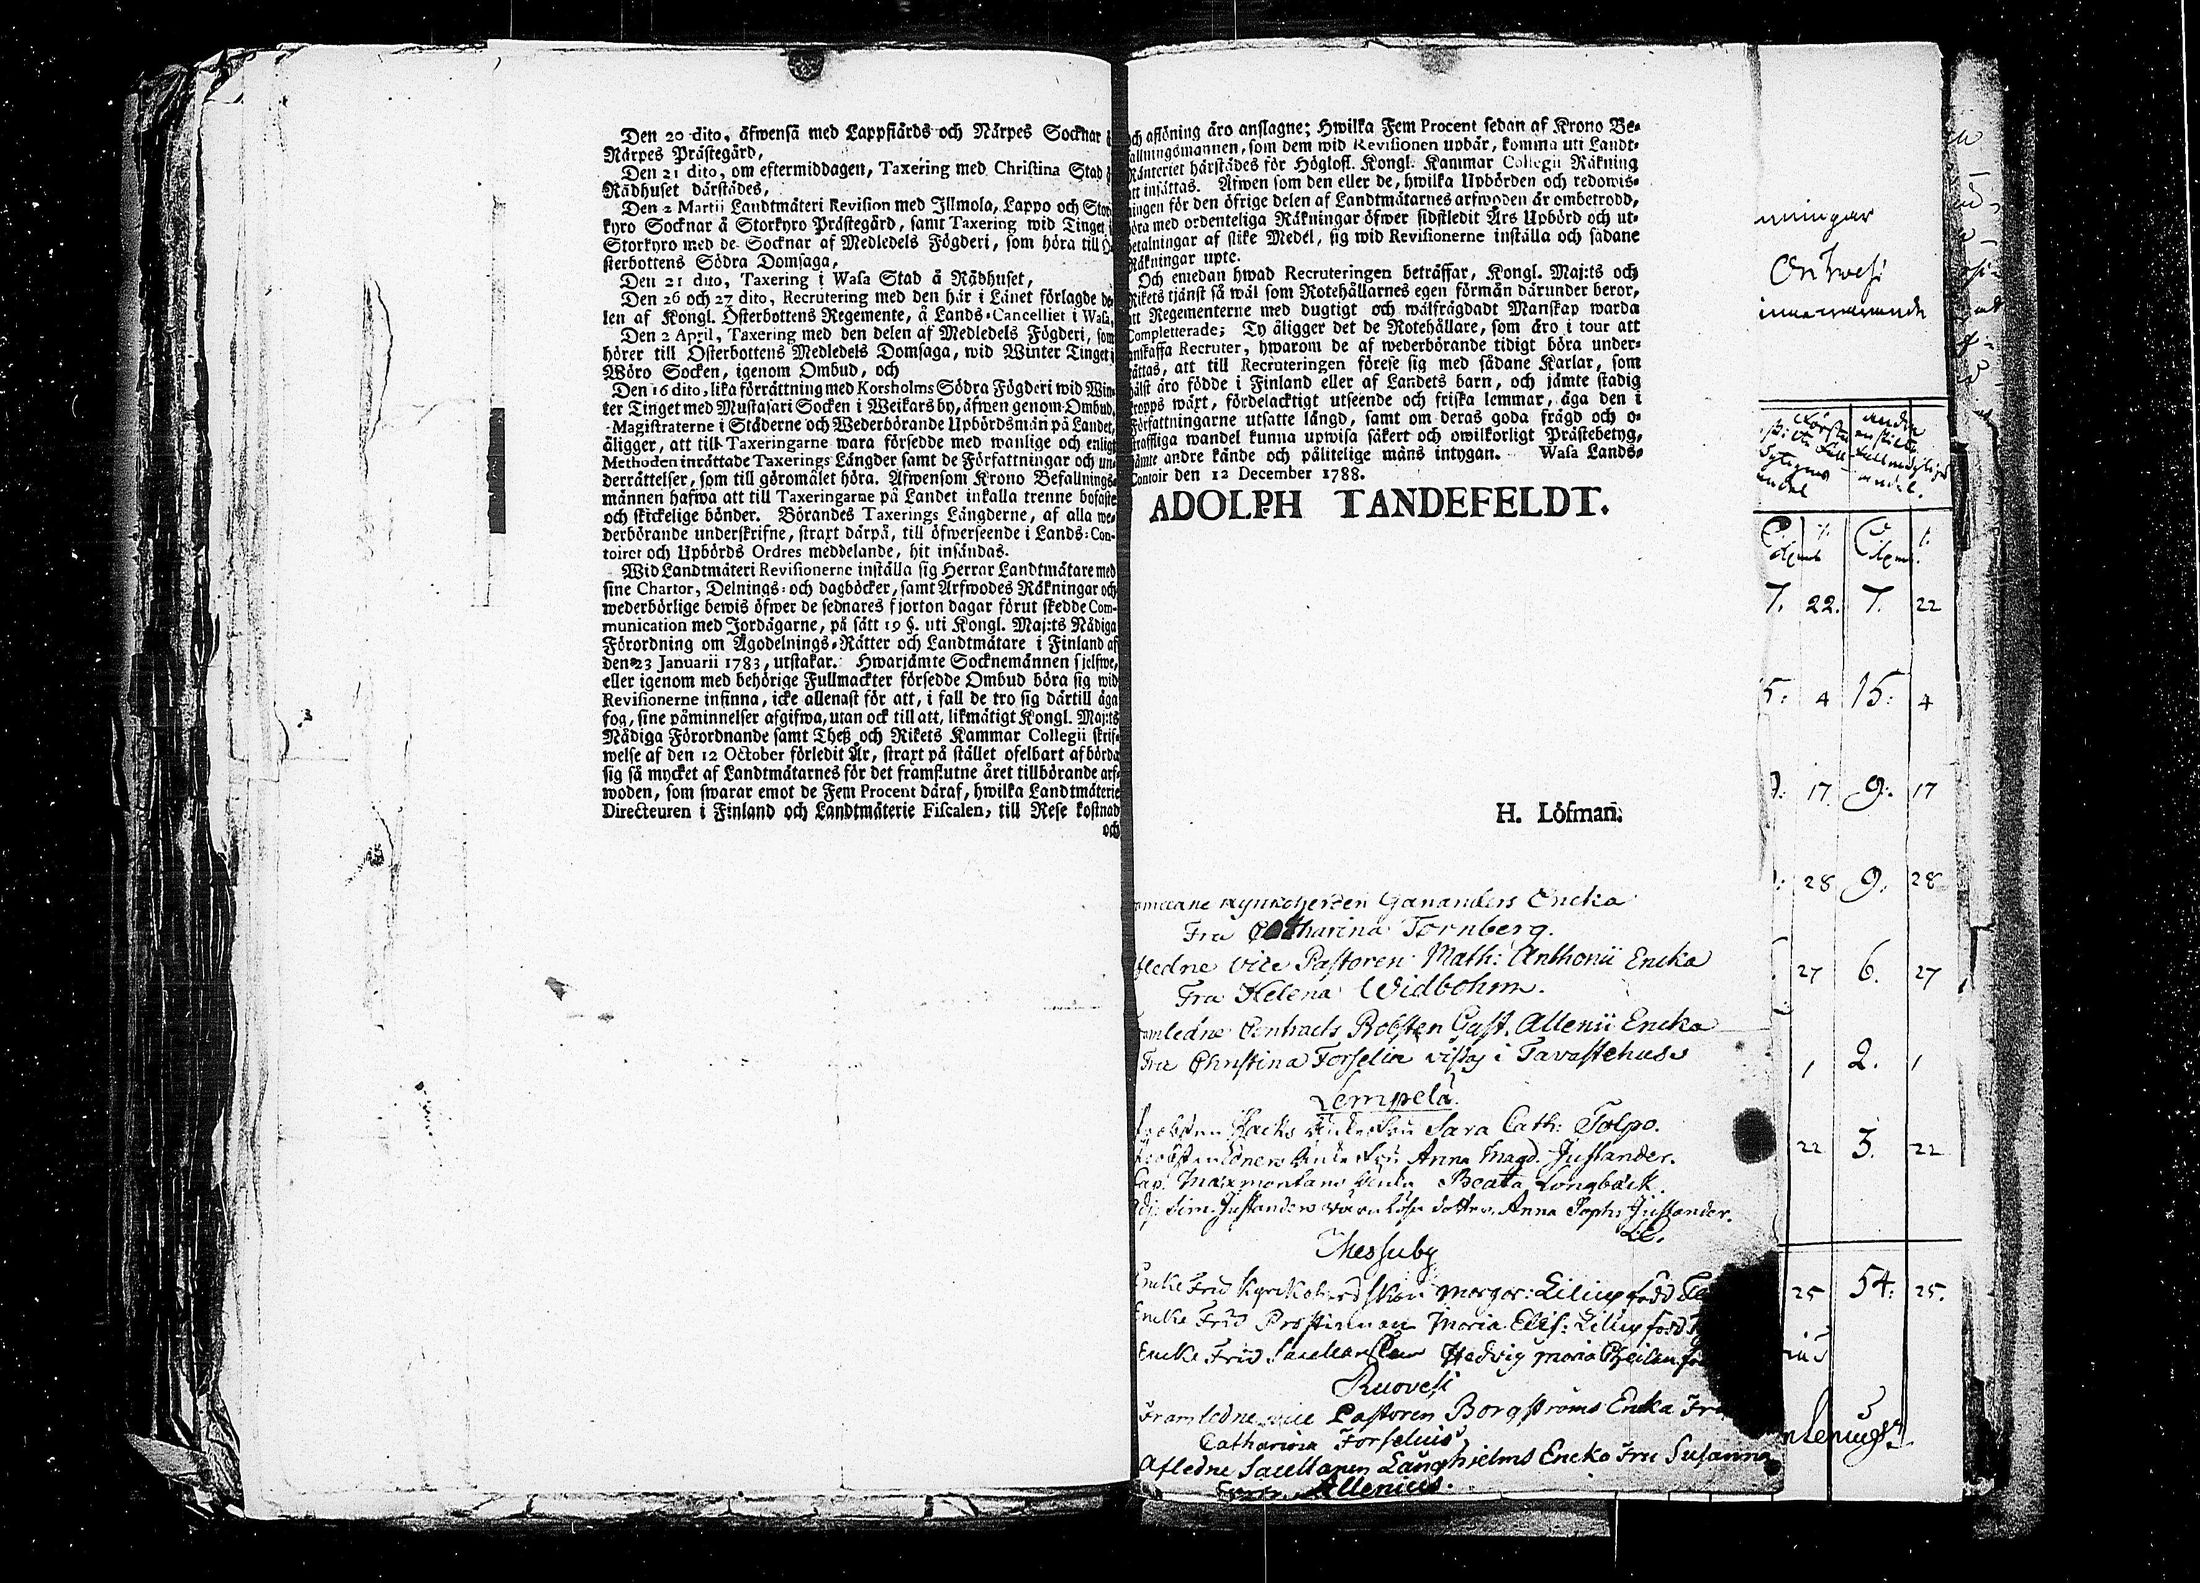 Den 20 dito, äfwensä med Lappfiärds och Närpes Socknar i
Närpes Prästegärd,
Den 21 dito, om eftermiddagen, Taxering med Christina Stad å
Rädhuset därstädes,
Den 2 Martii Landtmäteri Revision med Illmola, Lappo och Stor-
kyro Socknar å Storkyro Prästegärd, samt Taxering wid Tinget i
Storkyro med de Socknar af Medledels Fögderi, som höra till Ö-
sterbottens Södra Domsaga,
Den 21 dito, Taxering i Wasa Stad å Rädhuset,
Den 26 och 27 dito, Recrutering med den här i Länet förlagde de-
len af Kongl. Österbottens Regemente, å Lands-Cancelliet i Wasa,
Den 2 April, Taxering med den delen af Medledels Fögderi, som
hörer till Österbottens Medledels Domsaga, wid Winter Tinget i
Wöro Socken, igenom Ombud, och
Den 16 dito, lika förrättning med Korsholms Södra Fögderi wid Win-
ter Tinget med Mustasari Socken i Weikarsby, äfwen genom Ombud.
Magistraterne i Städerne och Wederbörande Upbördsmän på Landet,
äligger, att till Taxeringarne wara försedde med wanlige och enligt
Methoden inrättade Taxerings Längder samt de Författningar och un-
derrättelser, som till göromälet höra. Äfwensom Krono Befallnings-
männen hafwa att till Taxeringarne på Landet inkalla trenne bofaste
och skickelige bönder. Börandes Taxerings Längderne, af alla we-
derbörande underskrifne, straxt därpå, till öfwerseende i Lands-Con-
toiret och Upbörds Ordres meddelande, hit insändas.
Wid Landtmäteri Revisionerne inställa sig Herrar Landtmätare med
sine Chartor, Delnings- och dagböcker, samt Arfwodes Räkningar och
wederbörlige bewis öfwer de sednares fjorton dagar förut skedde Com-
munication med Jordägarne, på sätt 19 §. uti Kongl. Maj:ts Nådiga
Förordning om Ägodelnings-Rätter och Landtmätare i Finland af
den 23 Januarii 1783, utstakar. Hwarjämte Socknemännen sjelfwe,
eller igenom med behörige Fullmackter försedde Ombud böra sig wid
Revisionerne infinna, icke allenast för att, i fall de tro sig därtill äga
fog, sine påminnelser afgifwa, utan ock till att, likmätigt Kongl. Maj:ts
Nådiga Förordnande samt Theß och Rikets Kammar Collegii skrif-
welse af den 12 October förledit År, straxt på stället ofelbart afbörda
sig så mycket af Landtmätarnes för det framflutne året tillbörande arf-
woden, som swarar emot de Fem Procent däraf, hwilka Landtmäterie
Directeuren i Finland och Landtmäterie Fiscalen, till Rese kostnad
och
och aflöning äro anslagne; Hwilka Fem Procent sedan af Krono Be-
fallningsmannen, som dem wid Revisionen upbär, komma uti Landt-
Ränteriet härstädes för Höglofl. Kongl. Kammar Collegii Räkning
att insättas. Äfwen som den eller de, hwilka Upbörden och redowis-
ningen för den öfrige delen af Landtmätarnes arfwoden är ombetrodd,
böra med ordenteliga Räkningar öfwer sidstledit Års Upbörd och ut-
betalningar af slike Medel, sig wid Revisionerne inställa och sädane
Räkningar upte.
Och emedan hwad Recruteringen beträffar, Kongl. Maj:ts och
Rikets tjänst så wäl som Rotehållarnes egen förmän därunder beror,
att Regementerne med dugtigt och wälfrägdadt Manskap warda
Completterade; Ty äligger det de Rotehållare, som äro i tour att
anskaffa Recruter, hwarom de af wederbörande tidigt böra under-
rättas, att till Recruteringen förese sig med sädane Karlar, som
hälst äro födde i Finland eller af Landets barn, och jämte stadig
kropps wäxt, fördelacktigt utseende och friska lemmar, äga den i
Författningarne utsatte längd, samt om deras goda frägd och o-
straffliga wandel kunna upwisa säkert och owilkorligt Prästebetyg,
jämte andre kände och pålitelige mäns intygan. Wasa Lands-
Contoir den 12 December 1788.
ADOLPH TANDEFELDT.
H. Löfman.
Kyrkoherden Gananders Encka
Fru Catharina Tornberg.
afledne Vice Pastoren Math: Anthonii Encka
Fru Helena Widbohm.
framledne Contracts Probsten Gust. Allenii Encka
Fru Christina Forselia vistas i Tavastehus
Lempelä
Probsten Enke Fru Sara Cath: Tolpo.
Enke Fru Anna Magd. Juslander.
Cap. Maxmontans Enka Beata Longbäck.
Adj: Sim. Juslanders dotter Anna Soph: Juslander.
Messuby
Encke Fru Kyrkoherdskan Margar: Lilius född
Encke Fru Prostinnan Maria Elis: Lilius född
Encke Fru Hedvig Maria
Ruovesi
Framledne vice Pastoren Borgströms Encka Fru
Catharina Forselius
Afledne Sacellanen Långhielms Encka Fru Susanna
Allenius.
7. 22. 7. 22
5: 4 15: 4
17 9: 17
28 9: 28
27 6. 27
1 2. 1
22 3. 22
25 54: 25.